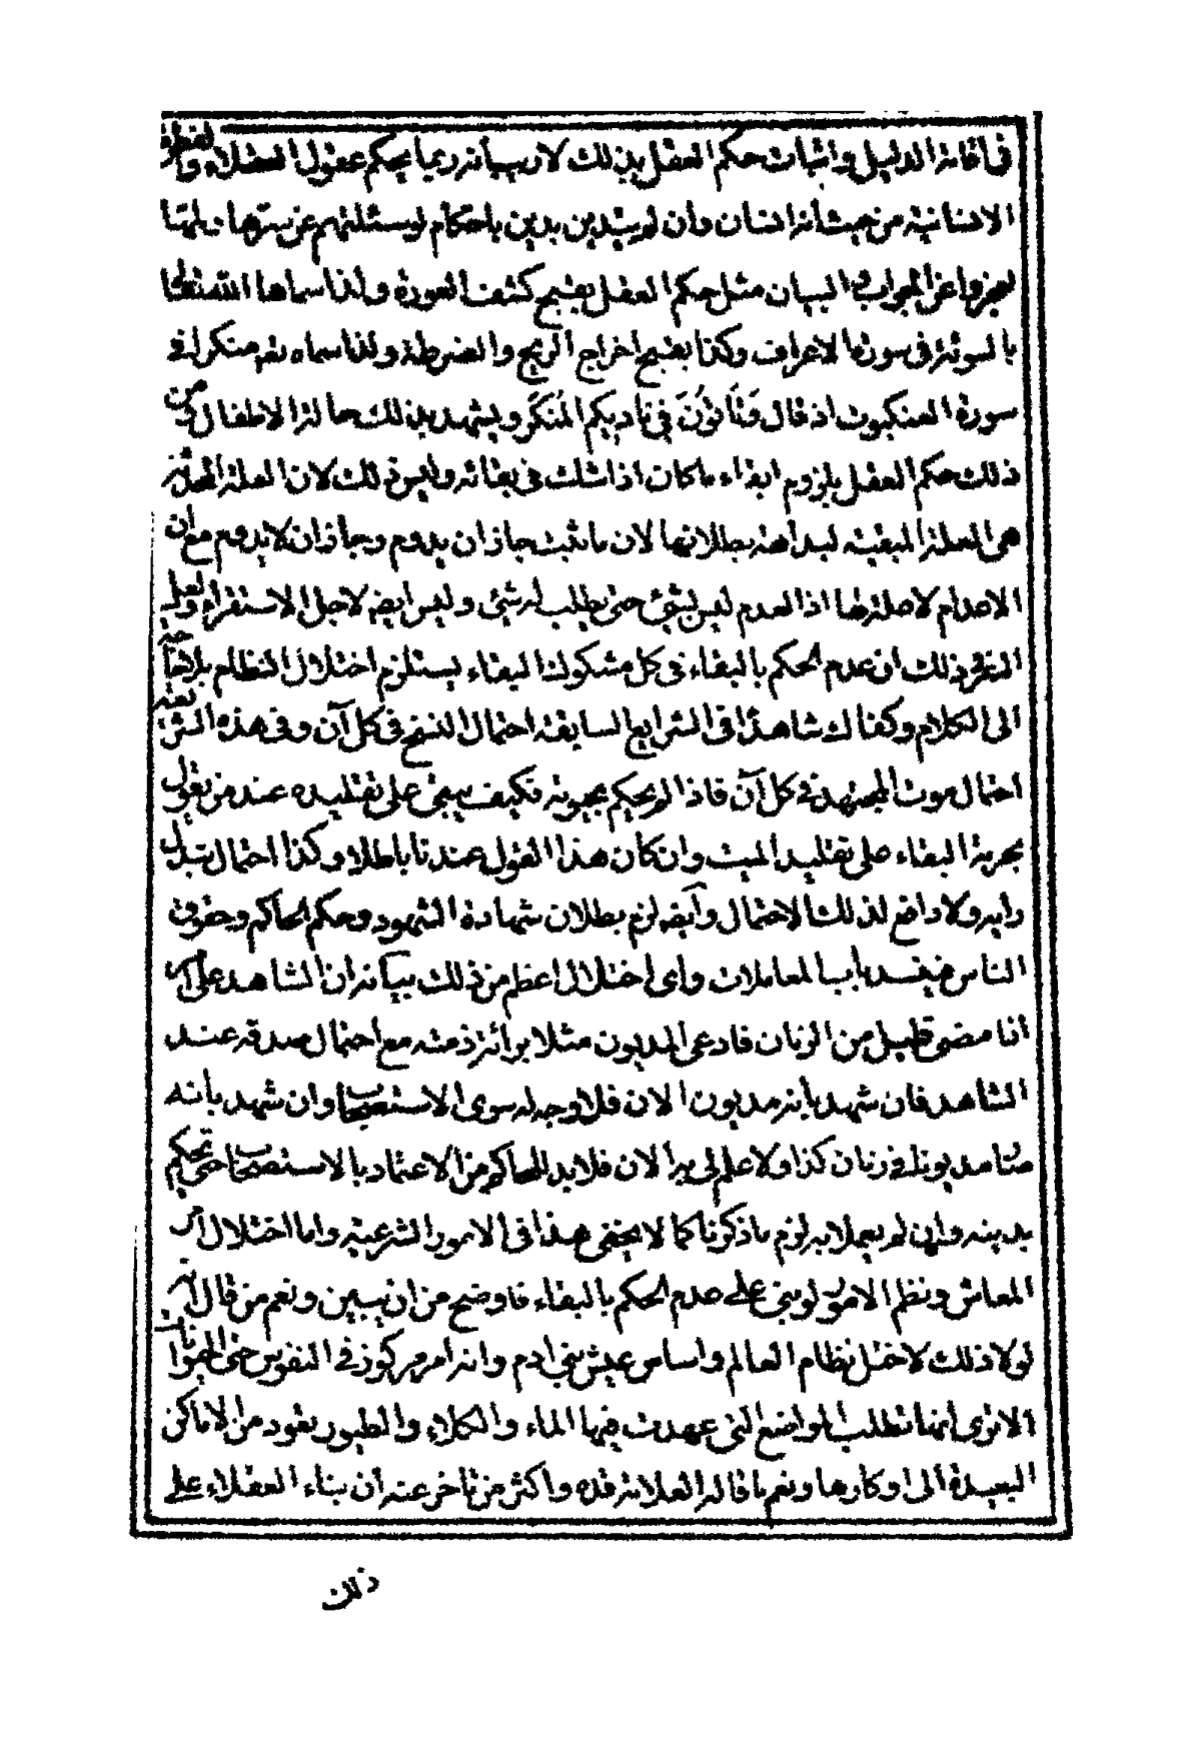 فى اقامة الدليل واثبات حكم العقل بذلك لاريب بانه ربما يحكم عقول العقلاء والفطرة
الانسانية من حيث انه انسان وان لم يتدين بدين باحكام لو سئلتهم عن سرها ولمها
لعجزوا عن الجواب والبيان مثل حكم العقل بقبح كشف العورة ولذا سماها الله تعالى
بالسوئة فى سورة الاعراف وكذا بقبح اخراج الريح والضرطة ولذا سماه نعم منكرا فى
سورة العنكبوت اذ قال وَتَأتُونَ فى ناديكم المُنكَر ويشهد بذلك حالة الاطفال ومن
ذلك حكم العقل بلزوم ابقاء ما كان اذا شك فى بقائه وليس ذلك لان العلة المحدثة
هى العلة المبقية لبداهة بطلانها لان ما ثبت جاز ان يدوم وجاز ان لا يدوم مع ان
الاعدام لا علة لها اذ العدم ليس بشئ حتى يطلب له شئ وليس ايضه لاجل الاستقراء ولعل
السر فى ذلك ان عدم الحكم بالبقاء فى كل مشكوك البقاء يستلزم اختلال النظام بلا حاجة
الى الكلام وكفاك شاهدا فى الشرايع السابقة احتمال النسخ فى كل آن وفى هذه الشريعة
احتمال موت المجتهد فى كل آن فاذا لم يحكم بحيوته فكيف يبقى على تقليده عند من يقول
بحرمة البقاء على تقليد الميت وان كان هذا القول عندنا باطلا وكذا احتمال تبدل
رايه ولا دافع لذلك الاحتمال وايضه لزم بطلان شهادة الشهود وحكم الحاكم وحقوق
الناس فيفسد باب المعاملات واى اختلال اعظم من ذلك بيانه ان الشاهد على امر
اذا مضى قليل من الزمان فادعى المديون مثلا برائة ذمته مع احتمال صدقه عند
الشاهد فان شهد بانه مديون الان فلا وجه له سوى الاستصحاب وان شهد بانه
صار مديونا فى زمان كذا ولا علم لى به الان فلا بد للحاكم من الاعتماد بالاستصحاب حتى يحكم
بدينه وان لم يعملا به لزم ما ذكرنا كما لا يخفى هذا فى الامور الشرعية واما اختلال امر
المعاش ونظم الامور لو بنى على عدم الحكم بالبقاء فاوضح من ان يبين ونعم من قال انه
لولا ذلك لاختل نظام العالم واساس عيش بنى ادم وانه امر مركوز فى النفوس حتى الحيوانات
الا ترى انها تطلب المواضع التى عهدت فيها الماء والكلاء والطيور يعود من الاماكن
البعيدة الى اوكارها ونعم ما قاله العلامة قده واكثر من تاخر عنه ان بناء العقلاء على
ذلك